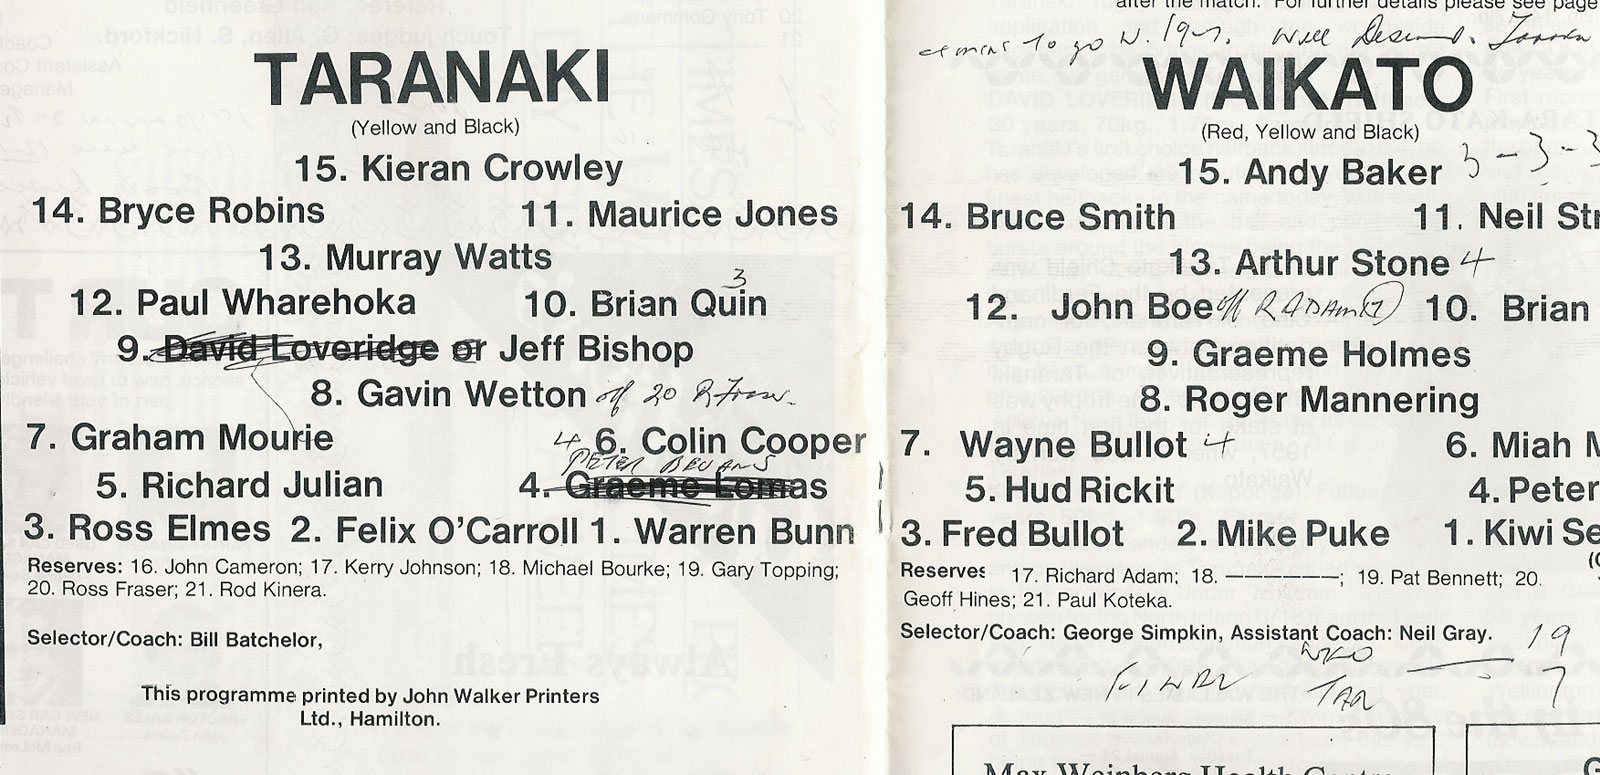 TARANAKI
(Yellow and Black)
15. Kieran Crowley
14. Bryce Robins 11. Maurice Jones
13. Murray Watts
3
12. Paul Wharehoka 10. Brian Quin
9. David Loveridge or Jeff Bishop
8. Gavin Wetton off 20 R. Fraser
7. Graham Mourie 4 6. Colin Cooper
PETER BEVANS
5. Richard Julian 4. Graeme Lomas
3. Ross Elmes 2. Felix O'Carroll 1. Warren Bunn
Reserves: 16. John Cameron; 17. Kerry Johnson; 18. Michael Bourke; 19. Gary Topping;
20. Ross Fraser; 21. Rod Kinera.
Selector/Coach: Bill Batchelor,
This programme printed by John Walker Printers
Ltd., Hamilton.
after the match. For further details please see page
to go Well
WAIKATO
(Red, Yellow and Black)
15. Andy Baker 3-3-3
14. Bruce Smith 11. Neil
13. Arthur Stone 4
12. John Boe off R ADAM 17 10. Brian
9. Graeme Holmes
8. Roger Mannering
7. Wayne Bullot 4 6. Miah
5. Hud Rickit 4. Peter
3. Fred Bullot 2. Mike Puke 1. Kiwi
Reserves 17. Richard Adam; 18. ———; 19. Pat Bennett; 20.
Geoff Hines; 21. Paul Koteka.
Selector/Coach: George Simpkin, Assistant Coach: Neil Gray.
WKO — 19
FINAL TAR 7
Max Weinberg Health Centre